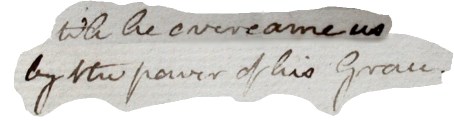 till he overcame us
by the power of his Grace.